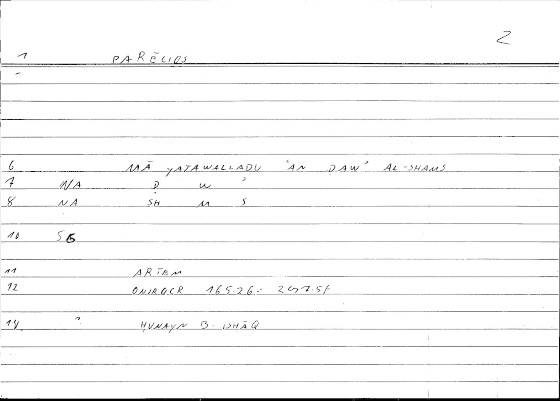 2
1 PARĒLIOS
6 MĀ YATAWALLADU ʿAN ḌAWʾ AL-SHAMS
7 NA Ḍ W ʾ
8 NA SH M S
10 SG
11 ARTEM
12 ONIROCR
14 ḤUNAYN B. ISḤĀQ